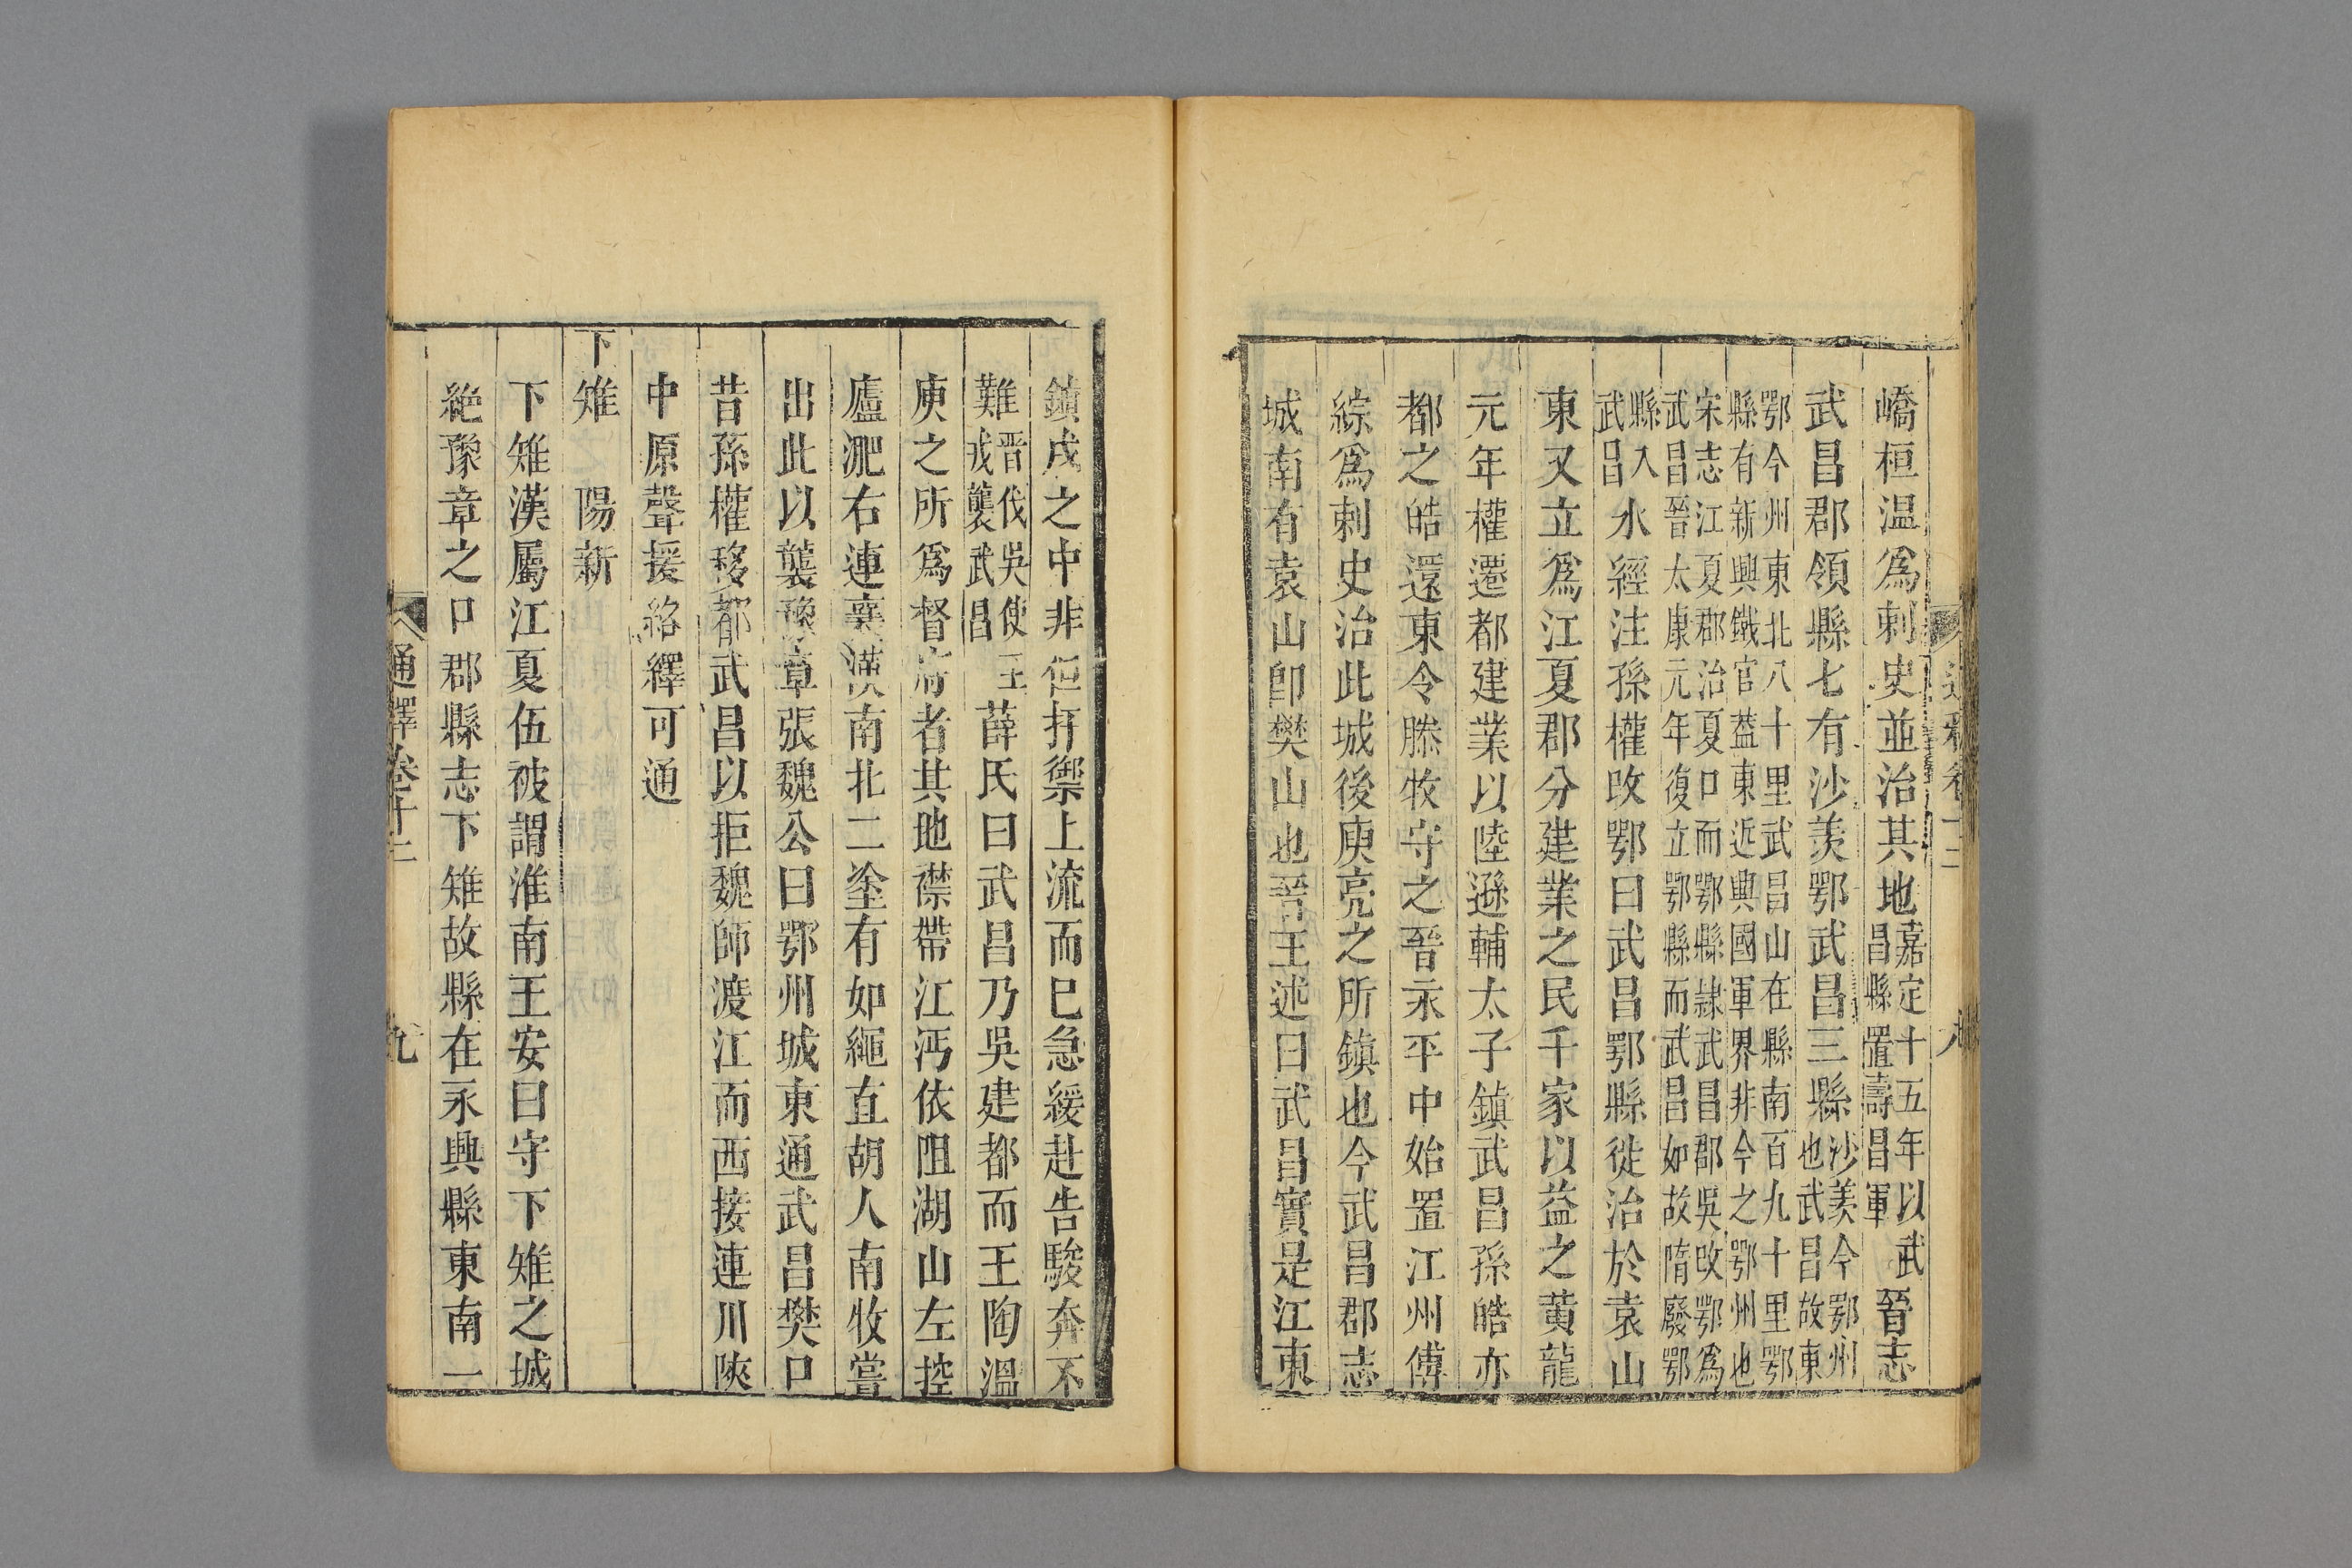 嶠桓温爲刺史並治其地嘉定十五年以武昌縣置壽昌軍晉志
武昌郡領縣七有沙羡鄂武昌三縣沙羡今鄂州也武昌故東
鄂今州東北八十里武昌山在縣南百九十里鄂縣有新興鐵官葢東近興國軍界非今之鄂州也
宋志江夏郡治夏口而鄂縣隷武昌郡吳改鄂爲武昌晉太康元年復立鄂縣而武昌如故隋廢鄂
縣入武昌水經注孫權改鄂曰武昌鄂縣徙治於袁山
東又立爲江夏郡分建業之民千家以益之黄龍
元年權遷都建業以陸遜輔太子鎮武昌孫皓亦
都之皓還東令滕牧守之晉永平中始置江州傅
綜爲刺史治此城後庾亮之所鎮也今武昌郡志
城南有袁山卽樊山也晉王述曰武昌實是江東
通釋卷十二
鎮戍之中非但扞禦上流而已急緩赴告駿奔不
難晉伐吳使王戎襲武昌薛氏曰武昌乃吳建都而王陶溫
庾之所爲督府者其地襟帶江沔依阻湖山左控
廬淝右連襄漢南北二塗有如繩直胡人南牧嘗
出此以襲豫章張魏公曰鄂州城東通武昌樊口
昔孫權移都武昌以拒魏師渡江而西接連川陝
中原聲援絡繹可通
下雉 陽新
下雉漢屬江夏伍被謂淮南王安曰守下雉之城
絶豫章之口郡縣志下雉故縣在永興縣東南一
通釋卷十二 九